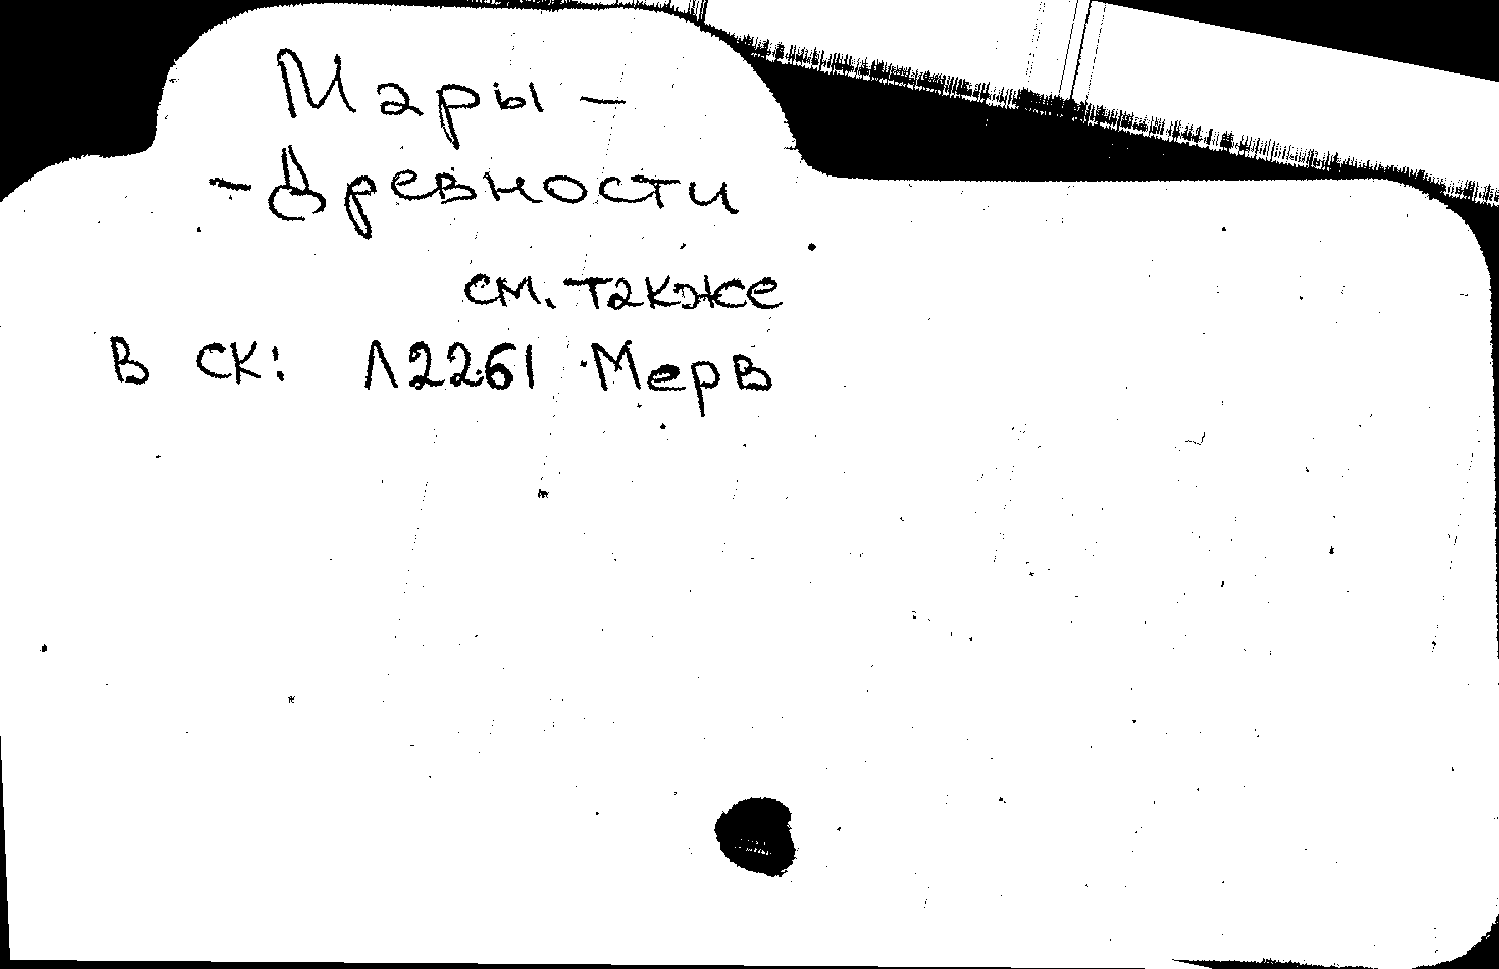 Мары -
- Древности
см. также
В СК: Л2261 Мерв